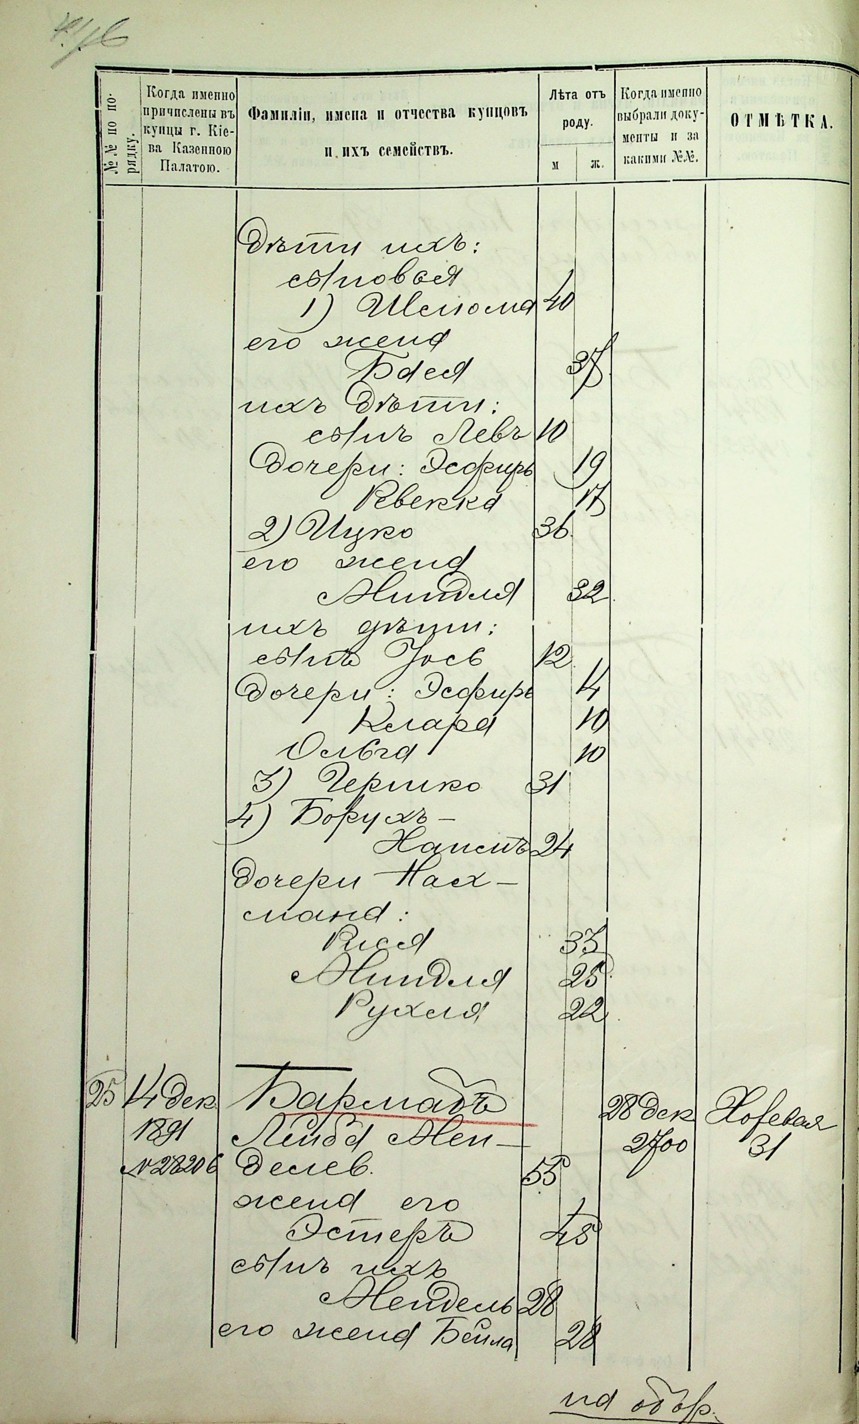 №№ по по-
рядку.
Когда именно
причислены въ
купцы г. Кіе-
ва Казенною
Палатою.
Фамиліи, имена и отчества купцовъ
и ихъ семействъ.
Лѣта отъ
роду.
м ж.
Когда именно
выбрали доку-
менты и за
какими №№.
ОТМѢТКА.
Дѣти ихъ:
сыновья
1) Шлема 40
его жена
Бася 37
ихъ дѣти:
сынъ Левъ 10
Дочери: Эсфирь 19
Ревекка 17
2) Ицко 36
его жена
Миндля 32
ихъ дѣти:
сынъ Іось 12
Дочери: Эсфирь 14
Клара 10
Ольга 10
3) Гершко 31
4) Борухъ-
Хаимъ 24
Дочери Нах-
мана:
Рися 33
Миндля 25
Рухля 22
25 14 дек Бармадъ 28 дек Хоревая
1891 Лейба Мен- 2700 31
№ 28206 делев. 55
жена его
Эстеръ 45
сынъ ихъ
Мендель 28
его жена Бейла 28
на обор.